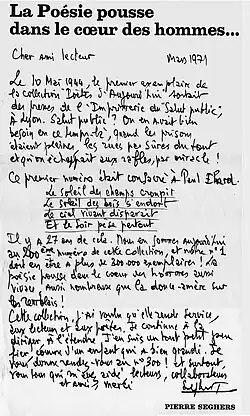 La Poésie pousse
dans le cœur des hommes...
Cher ami lecteur
Mars 1971
Le 10 Mai 1944, le premier exemplaire de
la collection "Poètes d'Aujourd'hui" sortait
des presses de l'"Imprimerie du Salut public",
à Lyon. Salut public ? On en avait bien
besoin en ce temps-là, quand les prisons
étaient pleines, les rues peu sûres du tout
et qu'on échappait aux rafles, par miracle !
Ce premier numéro était consacré à Paul Eluard.
Le soleil des champs croupit
Le soleil des bois s'endort
Le ciel vivant disparaît
Et le soir pèse partout
Il y a 27 ans de cela. Nous en sommes aujourd'hui
au 200ème numéro de cette collection, et notre n° 1
dont on a plus de 300.000 exemplaires ! La
poésie pousse dans le cœur des hommes aussi
vivace, aussi nombreuse que la douce-amère sur
les
Cette collection, j'ai voulu qu'elle rende service
aux lecteurs et aux poètes. Je continue à la
diriger, à l'étendre. J'en suis un tout petit peu
fier comme d'un enfant qui a bien grandi. Je
vous donne rendez-vous au n° 300 ! Et surtout,
vous tous qui m'avez aidé, lecteurs, collaborateurs
et amis, merci
Seghers
PIERRE SEGHERS